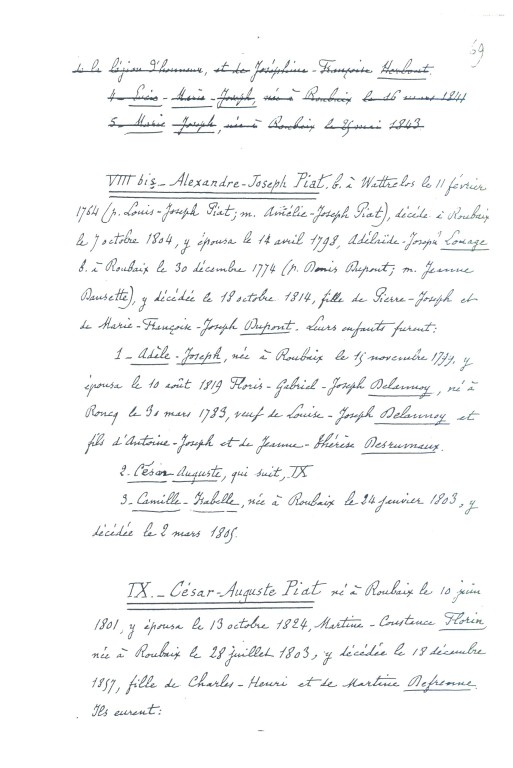 69
de la légion d'honneur, et de Joséphine-Françoise Herbaut.
4_ Lucie-Marie-Joseph, née à Roubaix le 16 mars 1841
5_ Marie Joseph, née à Roubaix le 25 mai 1843
VIII bis_ Alexandre-Joseph Piat, b. à Wattrelos le 11 février
1764 (p. Louis-Joseph Piat; m. Amélie-Joseph Piat), décédé à Roubaix
le 7 octobre 1804, y épousa le 14 avril 1798, Adélaïde-Joseph Louage
b. à Roubaix le 30 décembre 1774 (p. Denis Dupont; m. Jeanne
Dansette), y décédée le 18 octobre 1814, fille de Pierre-Joseph et
de Marie-Françoise-Joseph Dupont. Leurs enfants furent:
1_ Adèle-Joseph, née à Roubaix le 15 novembre 1799, y
épousa le 10 août 1819 Floris-Gabriel-Joseph Delannoy, né à
Roncq le 30 mars 1783, veuf de Louise-Joseph Delannoy et
fils d'Antoine-Joseph et de Jeanne-Thérèse Desrumaux.
2_ César Auguste, qui suit, IX
3_ Camille-Isabelle, née à Roubaix le 24 janvier 1803, y
décédée le 2 mars 1805.
IX_ César-Auguste Piat né à Roubaix le 10 juin
1801, y épousa le 13 octobre 1824, Martine-Constance Florin
née à Roubaix le 28 juillet 1803, y décédée le 18 décembre
1857, fille de Charles-Henri et de Martine Defrenne.
Ils eurent: